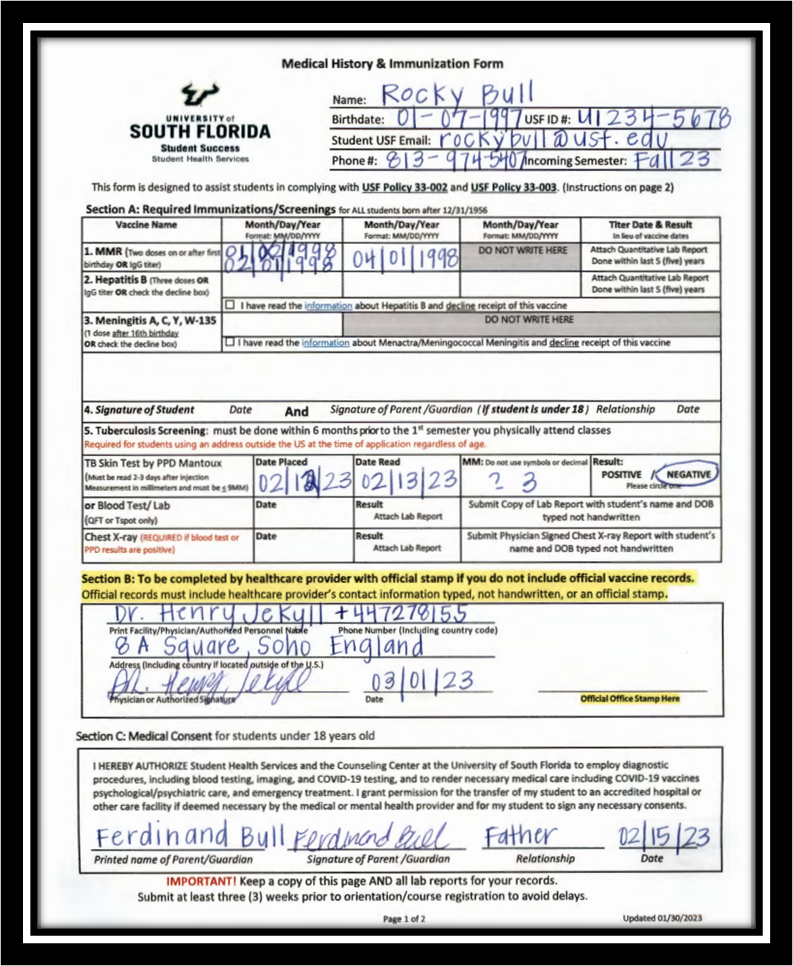 Medical History & Immunization Form
UNIVERSITY of
SOUTH FLORIDA
Student Success
Student Health Services
Name: Rocky Bull
Birthdate: 01-07-1997 USF ID #: U1234-5678
Student USF Email: rockybull@usf.edu
Phone #: 813-974-5407 Incoming Semester: Fall 23
This form is designed to assist students in complying with USF Policy 33-002 and USF Policy 33-003. (Instructions on page 2)
Section A: Required Immunizations/Screenings for ALL students born after 12/31/1956
Vaccine Name Month/Day/Year Month/Day/Year Month/Day/Year Titer Date & Result
Format: MM/DD/YYYY Format: MM/DD/YYYY Format: MM/DD/YYYY In lieu of vaccine dates
1. MMR (Two doses on or after first 02/01/1998 04/01/1998 DO NOT WRITE HERE Attach Quantitative Lab Report
birthday OR IgG titer) Done within last 5 (five) years
2. Hepatitis B (Three doses OR Attach Quantitative Lab Report
IgG titer OR check the decline box) Done within last 5 (five) years
☐ I have read the information about Hepatitis B and decline receipt of this vaccine
3. Meningitis A, C, Y, W-135 DO NOT WRITE HERE
(1 dose after 16th birthday
OR check the decline box) ☐ I have read the information about Menactra/Meningococcal Meningitis and decline receipt of this vaccine
4. Signature of Student Date And Signature of Parent /Guardian (If student is under 18) Relationship Date
5. Tuberculosis Screening: must be done within 6 months prior to the 1st semester you physically attend classes
Required for students using an address outside the US at the time of application regardless of age.
TB Skin Test by PPD Mantoux Date Placed Date Read MM: Do not use symbols or decimal Result:
(Must be read 2-3 days after injection 02/ /23 02/13/23 ? 3 POSITIVE / NEGATIVE
Measurement in millimeters and must be ≤ 9MM) Please circle one
or Blood Test/ Lab Date Result Submit Copy of Lab Report with student's name and DOB
(QFT or Tspot only) Attach Lab Report typed not handwritten
Chest X-ray (REQUIRED if blood test or Date Result Submit Physician Signed Chest X-ray Report with student's
PPD results are positive) Attach Lab Report name and DOB typed not handwritten
Section B: To be completed by healthcare provider with official stamp if you do not include official vaccine records.
Official records must include healthcare provider's contact information typed, not handwritten, or an official stamp.
Dr. Henry Jekyll +447278155
Print Facility/Physician/Authorized Personnel Name Phone Number (Including country code)
8 A Square, Soho England
Address (Including country if located outside of the U.S.)
Dr. Henry Jekyll 03/01/23
Physician or Authorized Signature Date Official Office Stamp Here
Section C: Medical Consent for students under 18 years old
I HEREBY AUTHORIZE Student Health Services and the Counseling Center at the University of South Florida to employ diagnostic
procedures, including blood testing, imaging, and COVID-19 testing, and to render necessary medical care including COVID-19 vaccines
psychological/psychiatric care, and emergency treatment. I grant permission for the transfer of my student to an accredited hospital or
other care facility if deemed necessary by the medical or mental health provider and for my student to sign any necessary consents.
Ferdinand Bull Ferdinand Bull Father 02/15/23
Printed name of Parent/Guardian Signature of Parent /Guardian Relationship Date
IMPORTANT! Keep a copy of this page AND all lab reports for your records.
Submit at least three (3) weeks prior to orientation/course registration to avoid delays.
Page 1 of 2 Updated 01/30/2023